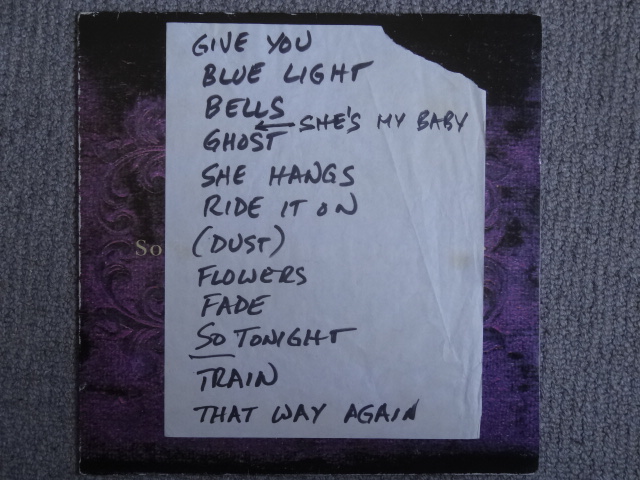 GIVE YOU
BLUE LIGHT
BELLS
SHE'S MY BABY
GHOST
SHE HANGS
RIDE IT ON
(DUST)
So
FLOWERS
FADE
SO TONIGHT
TRAIN
THAT WAY AGAIN